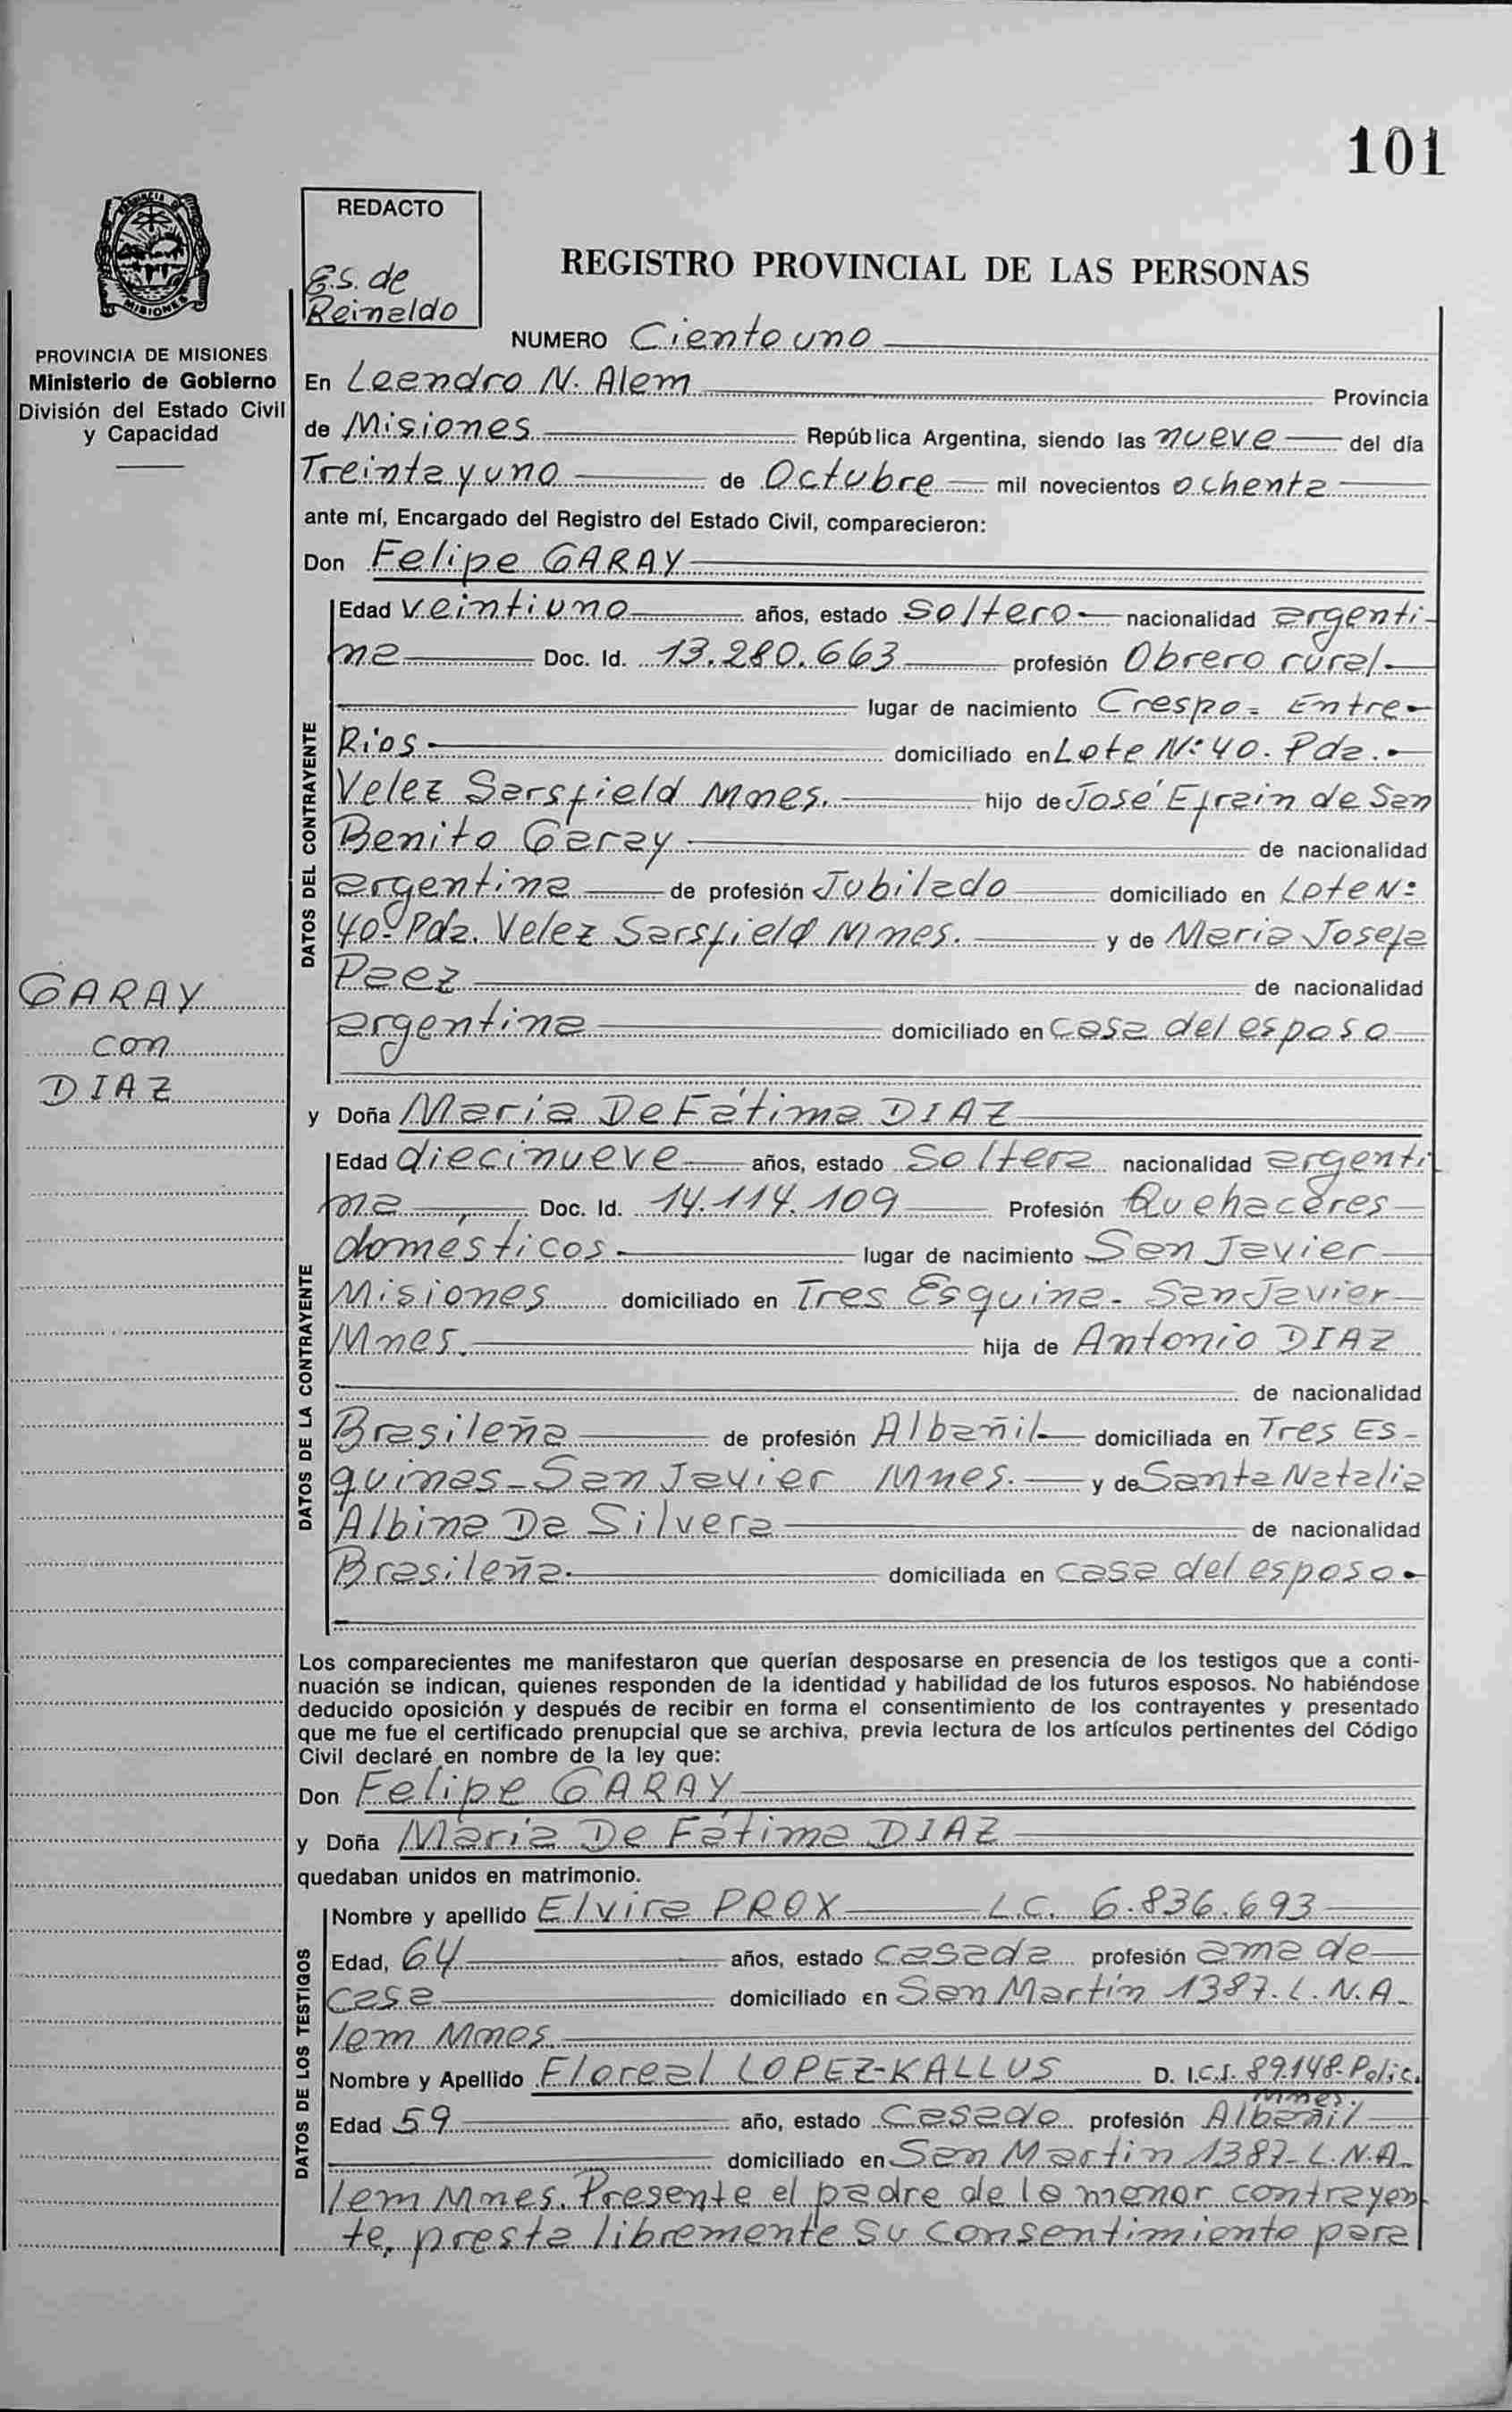 101
REDACTO
E.S. de
Reinaldo
REGISTRO PROVINCIAL DE LAS PERSONAS
PROVINCIA DE MISIONES
Ministerio de Gobierno
División del Estado Civil
y Capacidad
NUMERO Ciento uno
En Leandro N. Alem Provincia
de Misiones República Argentina, siendo las nueve del día
Treinta y uno de Octubre mil novecientos ochenta
ante mí, Encargado del Registro del Estado Civil, comparecieron:
Don Felipe GARAY
DATOS DEL CONTRAYENTE
Edad veintiuno años, estado Soltero nacionalidad argenti-
na Doc. Id. 13.280.663 profesión Obrero rural
lugar de nacimiento Crespo= Entre
Ríos domiciliado en Lote Nº 40. Pda.
Velez Sarsfield Mnes. hijo de José Efrain de San
Benito Garay de nacionalidad
argentina de profesión Jubilado domiciliado en Lote Nº
40º Pda. Velez Sarsfield Mnes. y de Maria Josefa
Paez de nacionalidad
argentina domiciliado en casa del esposo
GARAY
con
DIAZ
y Doña María De Fátima DIAZ
DATOS DE LA CONTRAYENTE
Edad diecinueve años, estado Soltera nacionalidad argenti
na Doc. Id. 14.114.109 Profesión Quehaceres
domésticos lugar de nacimiento San Javier
Misiones domiciliado en Tres Esquina- San Javier
Mnes. hija de Antonio DIAZ
de nacionalidad
Brasileña de profesión Albañil domiciliada en Tres Es-
quinas- San Javier Mnes. y de Santa Natalia
Albina Da Silvera de nacionalidad
Brasileña domiciliada en casa del esposo
Los comparecientes me manifestaron que querían desposarse en presencia de los testigos que a conti-
nuación se indican, quienes responden de la identidad y habilidad de los futuros esposos. No habiéndose
deducido oposición y después de recibir en forma el consentimiento de los contrayentes y presentado
que me fue el certificado prenupcial que se archiva, previa lectura de los artículos pertinentes del Código
Civil declaré en nombre de la ley que:
Don Felipe GARAY
y Doña María De Fátima DIAZ
quedaban unidos en matrimonio.
DATOS DE LOS TESTIGOS
Nombre y apellido Elvira PROX L.C. 6.836.693
Edad, 64 años, estado casada profesión ama de
casa domiciliado en San Martín 1387. L.N.A-
lem Mnes.
Nombre y Apellido Floreal LOPEZ-KALLUS D. I.C.I. 89.148-Polic.
Mnes.
Edad 59 año, estado Casado profesión Albañil
domiciliado en San Martin 1387- L.N.A-
lem Mnes. Presente el padre de la menor contrayen
te, presta libremente su consentimiento para